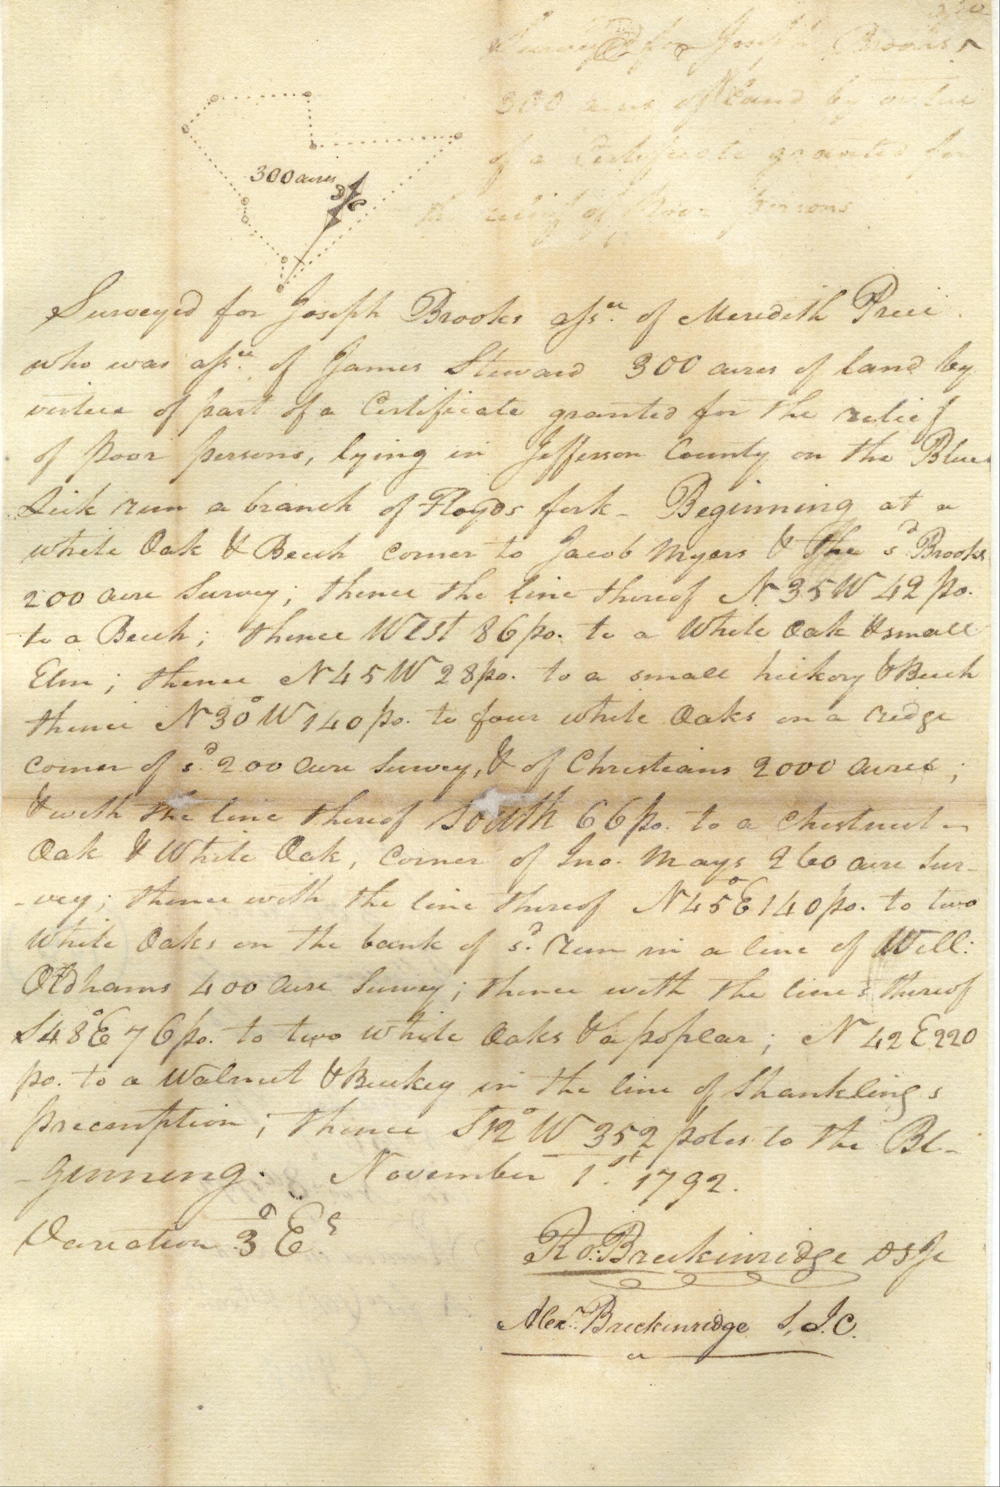 Surveyd for Joseph Brooks
300 acres of Land by virtue
of a Certificate granted for
the relief of Poor Persons
300 acres
Surveyed for Joseph Brooks asse. of Meredith Price
who was asse. of James Steward 300 acres of land by
virtue of part of a Certificate granted for the relief
of poor persons, lying in Jefferson County on the Blue
Lick run a branch of Floyds fork - Beginning at a
white Oak & Beech corner to Jacob Myers & the sd. Brooks
200 acre Survey; thence the line thereof N 35 W 42 po.
to a Beech; thence West 86 po. to a White Oak & small
Elm; thence N 45 W 28 po. to a small hickory & Beech
thence N 30° W 140 po. to four white Oaks on a redge
corner of sd. 200 acre Survey, & of Christians 2000 acres;
& with the line thereof South 66 po. to a chestnut -
Oak & White Oak, corner of Jno. Mays 260 acre Sur-
-vey; thence with the line thereof N 45° E 140 po. to two
White Oaks on the bank of sd. run in a line of Will:
Oldhams 400 acre Survey; thence with the lines thereof
S 48° E 76 po. to two white Oaks & a poplar; N 42 E 220
po. to a Walnut & Buckey in the line of Shanklings
preemption; thence S 12° W 352 poles to the Be-
-ginning. November 1st. 1792.
Variation 3° Es.
Ro: Breckinridge DSJc
Alexr. Breckinridge S. J. C.